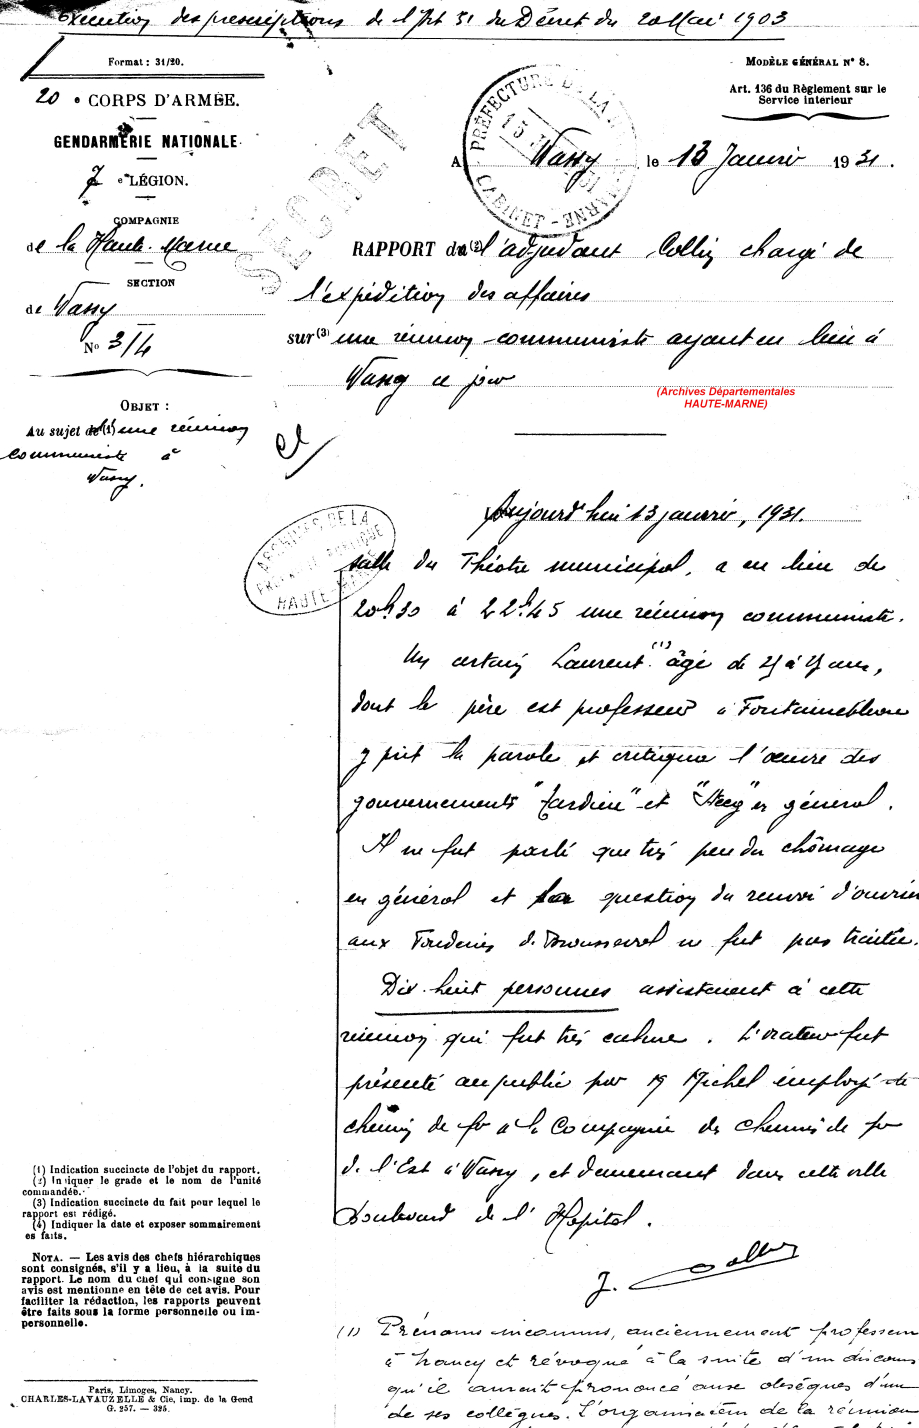 Exécution des prescriptions de l'Art 51 du Décret du 20 Mai 1903
Format : 31/20.
20 e CORPS D'ARMÉE.
GENDARMERIE NATIONALE
7 e LÉGION.
COMPAGNIE
de la Haute-Marne
SECTION
de Wassy
N° 3/4
OBJET :
Au sujet de (1) une réunion
communiste à
Wassy.
MODÈLE GÉNÉRAL N° 8.
Art. 136 du Règlement sur le
Service intérieur
PRÉFECTURE DE LA HAUTE-MARNE
CABINET
SECRET
A Wassy, le 13 Janvier 1931.
RAPPORT de (2) l'adjudant Collin chargé de
l'expédition des affaires
sur (3) une réunion communiste ayant eu lieu à
Wassy ce jour
(Archives Départementales
HAUTE-MARNE)
ARCHIVES DE LA
HAUTE-MARNE
Aujourd'hui 13 janvier, 1931.
salle du Théâtre municipal, a eu lieu de
20h30 à 22h45 une réunion communiste.
Un certain Laurent (1) âgé de à ans,
dont le père est professeur à Fontainebleau
y prit la parole et critiqua l'œuvre des
gouvernements "Tardieu" et "Steeg" en général.
Il ne fut parlé que très peu du chômage
en général et la question du renvoi d'ouvriers
aux Fonderies de Brousseval ne fut pas traitée.
Dix-huit personnes assistaient à cette
réunion qui fut très calme. L'orateur fut
présenté au public par M Michel employé de
chemin de fer à la Compagnie des chemins de fer
de l'Est à Wassy, et demeurant dans cette ville
Boulevard de l'Hôpital.
J. Collin
(1) Indication succincte de l'objet du rapport.
(2) Indiquer le grade et le nom de l'unité
commandée.
(3) Indication succincte du fait pour lequel le
rapport est rédigé.
(4) Indiquer la date et exposer sommairement
es faits.
NOTA. — Les avis des chefs hiérarchiques
sont consignés, s'il y a lieu, à la suite du
rapport. Le nom du chef qui consigne son
avis est mentionne en tête de cet avis. Pour
faciliter la rédaction, les rapports peuvent
être faits sous la forme personnelle ou im-
personnelle.
Paris, Limoges, Nancy.
CHARLES-LAVAUZELLE & Cie, imp. de la Gend
G. 257. — 325.
(1) Prénoms inconnus, anciennement professeur
à Nancy et révoqué à la suite d'un discours
qu'il aurait prononcé aux obsèques d'un
de ses collègues. L'organisation de la réunion